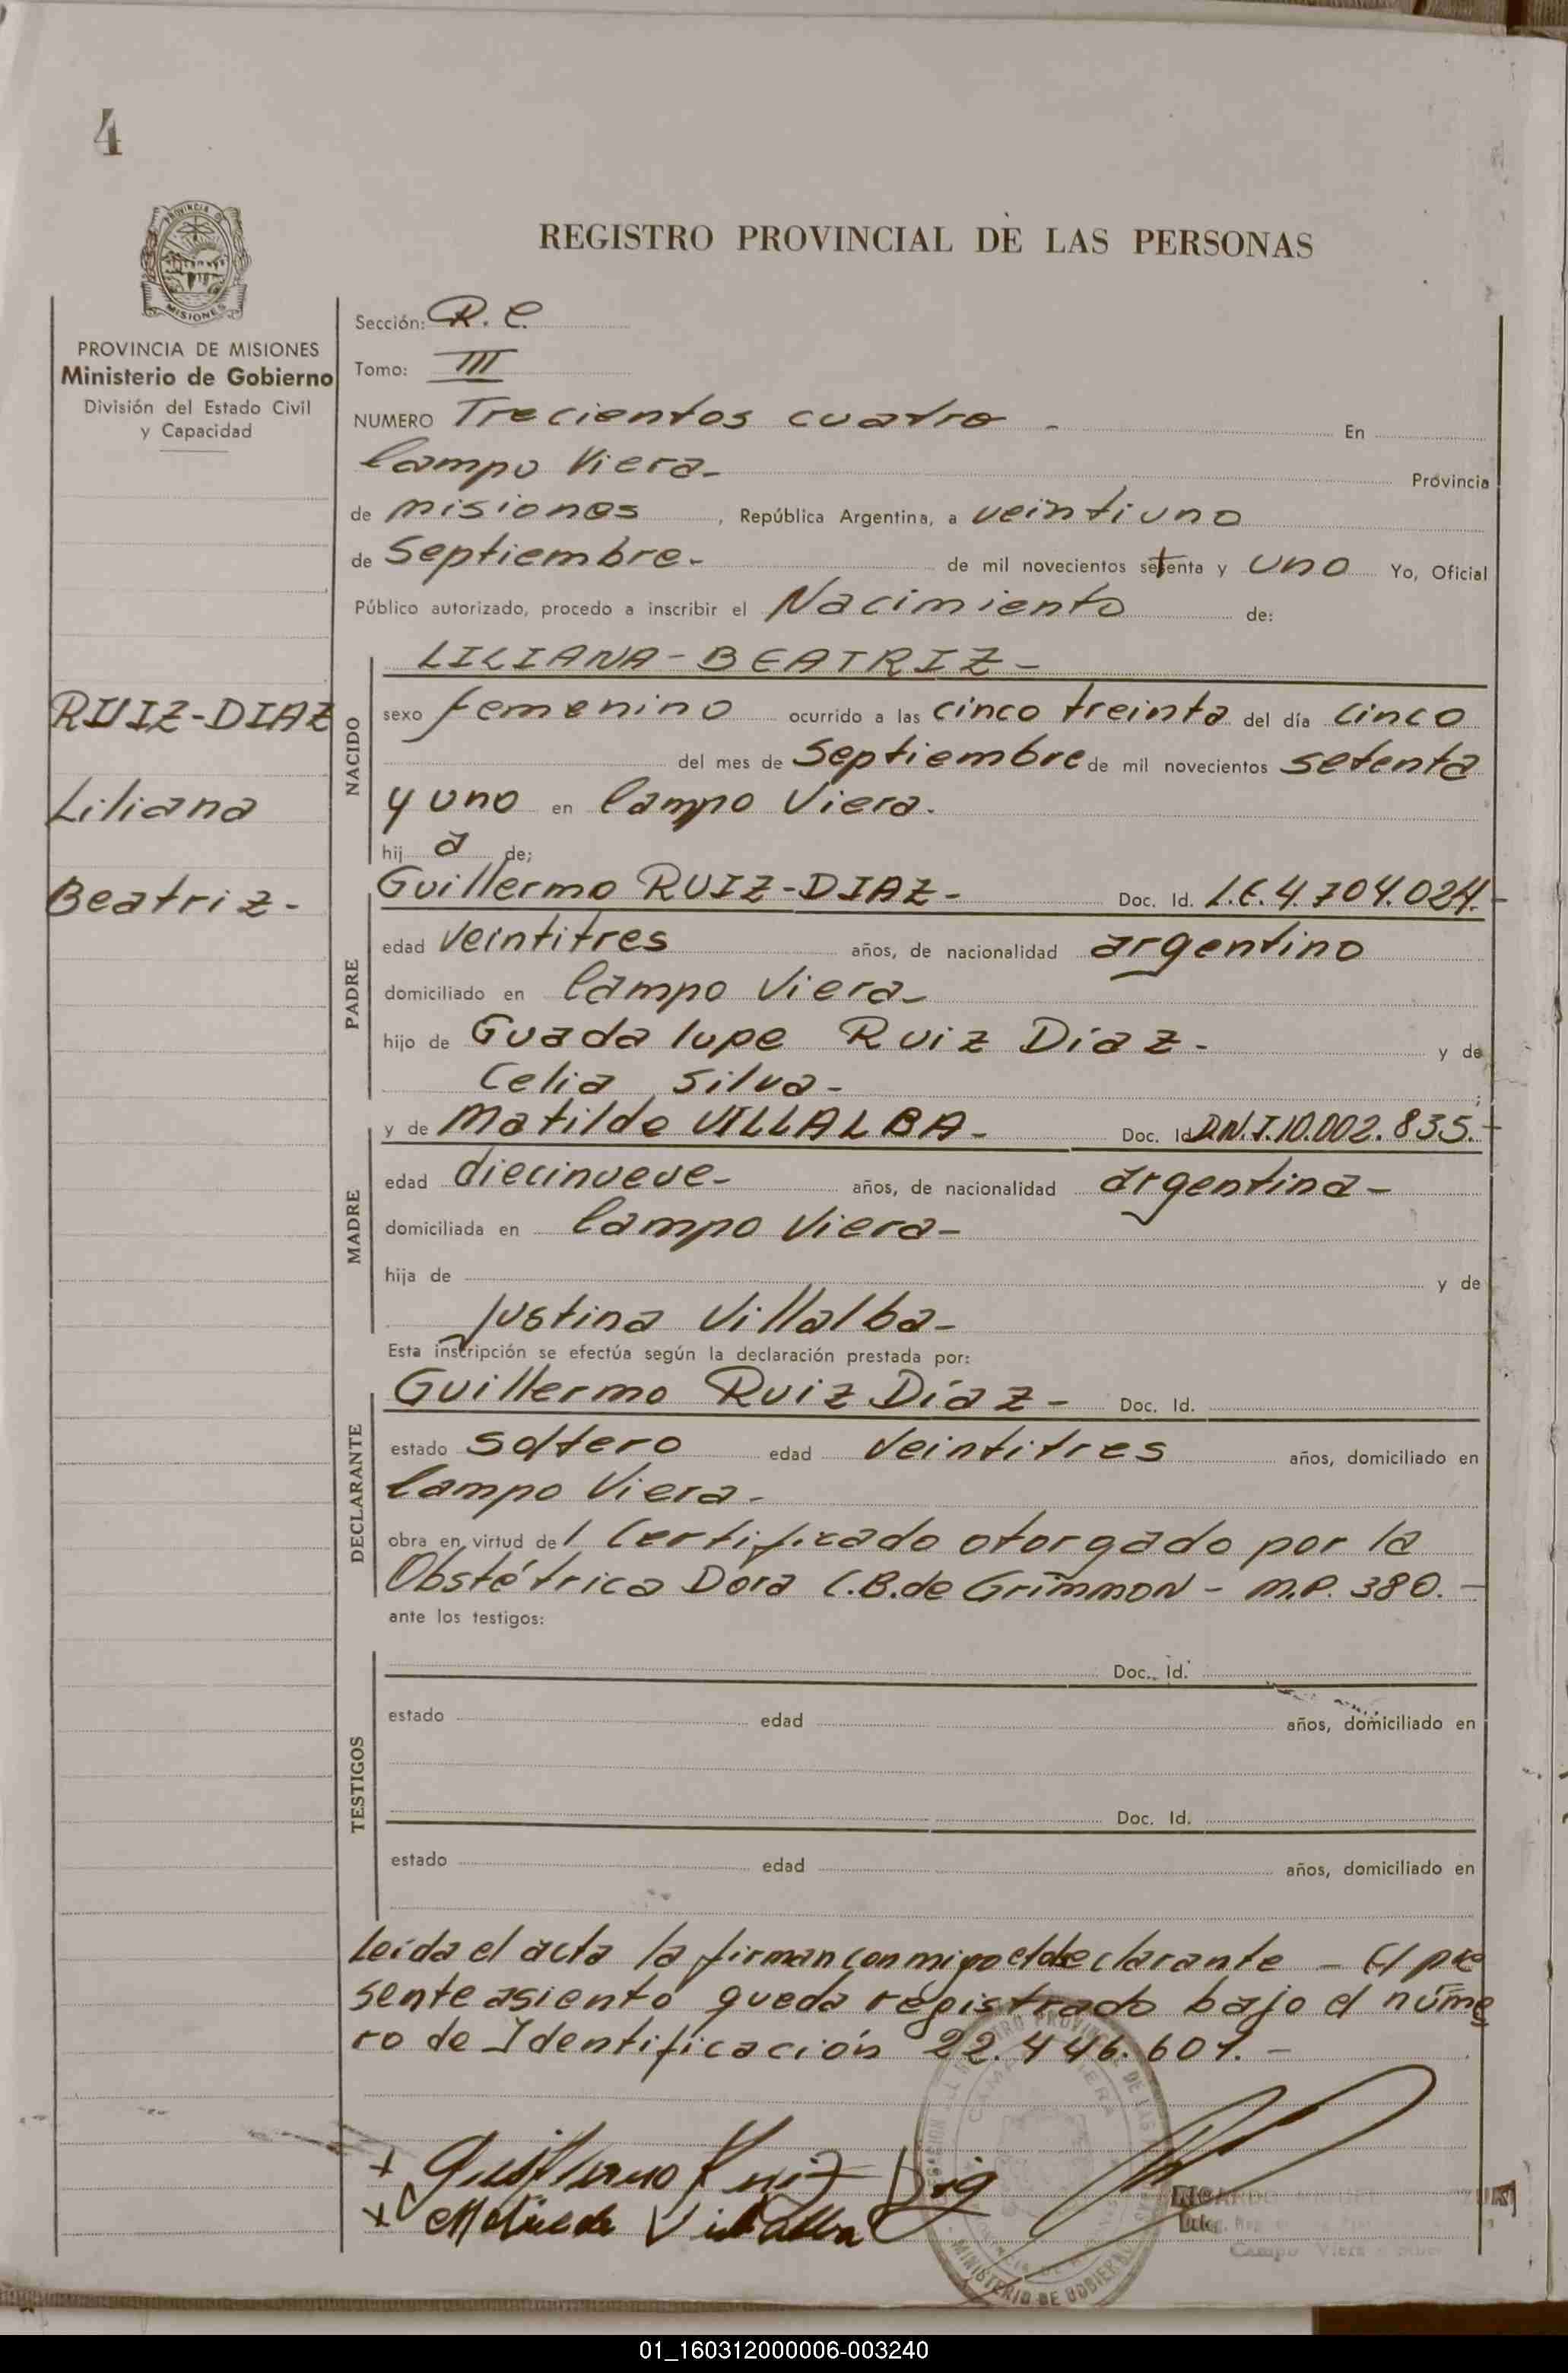 4
PROVINCIA DE MISIONES
Ministerio de Gobierno
División del Estado Civil
y Capacidad
RUIZ-DIAZ
Liliana
Beatriz-
REGISTRO PROVINCIAL DE LAS PERSONAS
Sección: R. C.
Tomo: III
NUMERO Trecientos cuatro - En
Campo Viera- Provincia
de misiones, República Argentina, a veintiuno
de Septiembre- de mil novecientos setenta y uno Yo, Oficial
Público autorizado, procedo a inscribir el Nacimiento de:
NACIDO
LILIANA-BEATRIZ-
sexo femenino ocurrido a las cinco treinta del día cinco
del mes de Septiembre de mil novecientos setenta
y uno en Campo Viera.
hij a de;
PADRE
Guillermo RUIZ-DIAZ- Doc. Id. L.E. 4.704.024.-
edad veintitres años, de nacionalidad argentino
domiciliado en Campo Viera-
hijo de Guadalupe Ruiz Díaz- y de
Celia Silva-;
MADRE
y de Matilde VILLALBA- Doc. Id. D.N.I. 10.002.835.-
edad diecinueve- años, de nacionalidad argentina-
domiciliada en Campo Viera-
hija de y de
Justina Villalba-
Esta inscripción se efectúa según la declaración prestada por:
DECLARANTE
Guillermo Ruiz Díaz- Doc. Id.
estado soltero edad veintitres años, domiciliado en
Campo Viera-
obra en virtud del Certificado otorgado por la
Obstétrica Dora C.B. de Grimmon - M.P. 380.-
ante los testigos:
TESTIGOS
Doc. Id.
estado edad años, domiciliado en
Doc. Id.
estado edad años, domiciliado en
Leída el acta la firman conmigo el declarante - El pre
sente asiento queda registrado bajo el núme
ro de Identificación 22.446.601.-
+ Guillermo Ruiz Diaz
+ Matilde Villalba
MINISTERIO DE GOBIERNO
Campo Viera
01_160312000006-003240